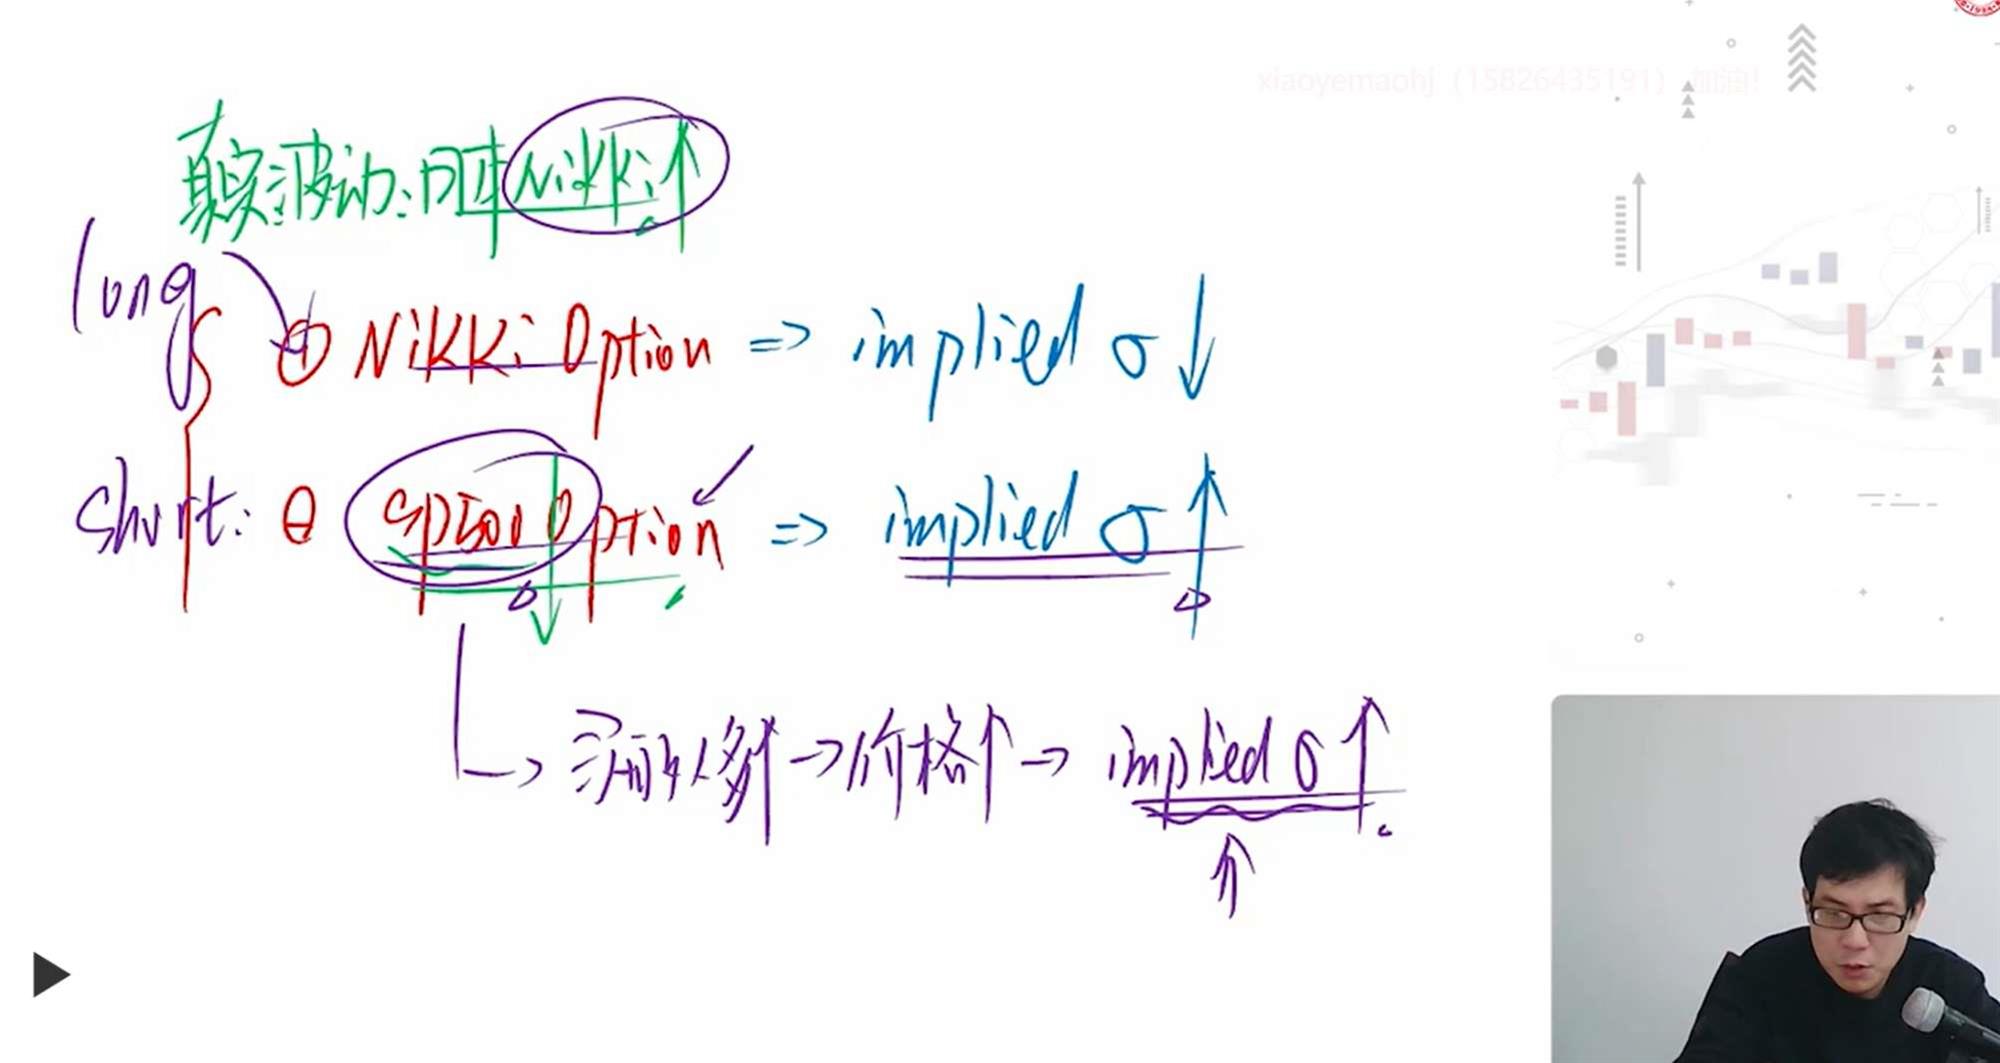 xiaoyemaohj (15826435191) 加油!
真实波动:日本Nikki↑
long
⊕ Nikki Option => implied σ ↓
short: ⊖ SP500 Option => implied σ ↑
↳ 买的人多↑ → 价格↑ → implied σ ↑